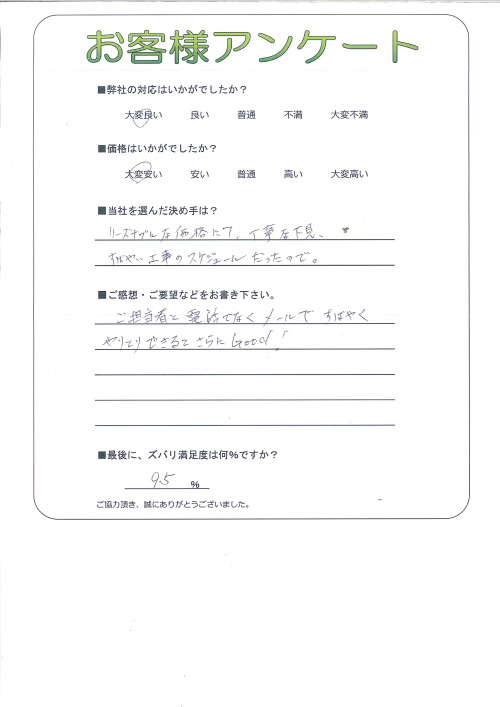 お客様アンケート
■弊社の対応はいかがでしたか？
大変良い 良い 普通 不満 大変不満
■価格はいかがでしたか？
大変安い 安い 普通 高い 大変高い
■当社を選んだ決め手は？
リーズナブルな価格にて、丁寧な下見、
すばやい工事のスケジュールだったので。
■ご感想・ご要望などをお書き下さい。
ご担当者と電話でなくメールですばやく
やりとりできるとさらにGood！
■最後に、ズバリ満足度は何％ですか？
95 ％
ご協力頂き、誠にありがとうございました。